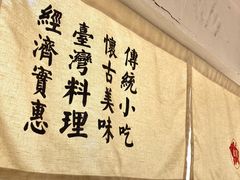 傳統小吃
懷古美味
臺灣料理
經濟實惠